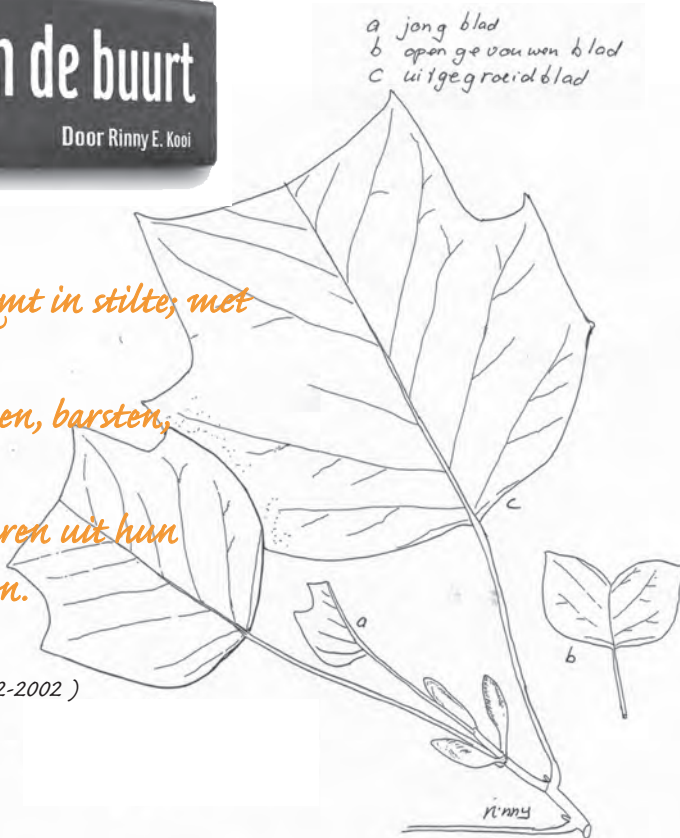 n de buurt
Door Rinny E. Kooi
a jong blad
b open gevouwen blad
c uitgegroeid blad
mt in stilte; met
en, barsten,
ren uit hun
n.
2-2002 )
c
a
b
rinny